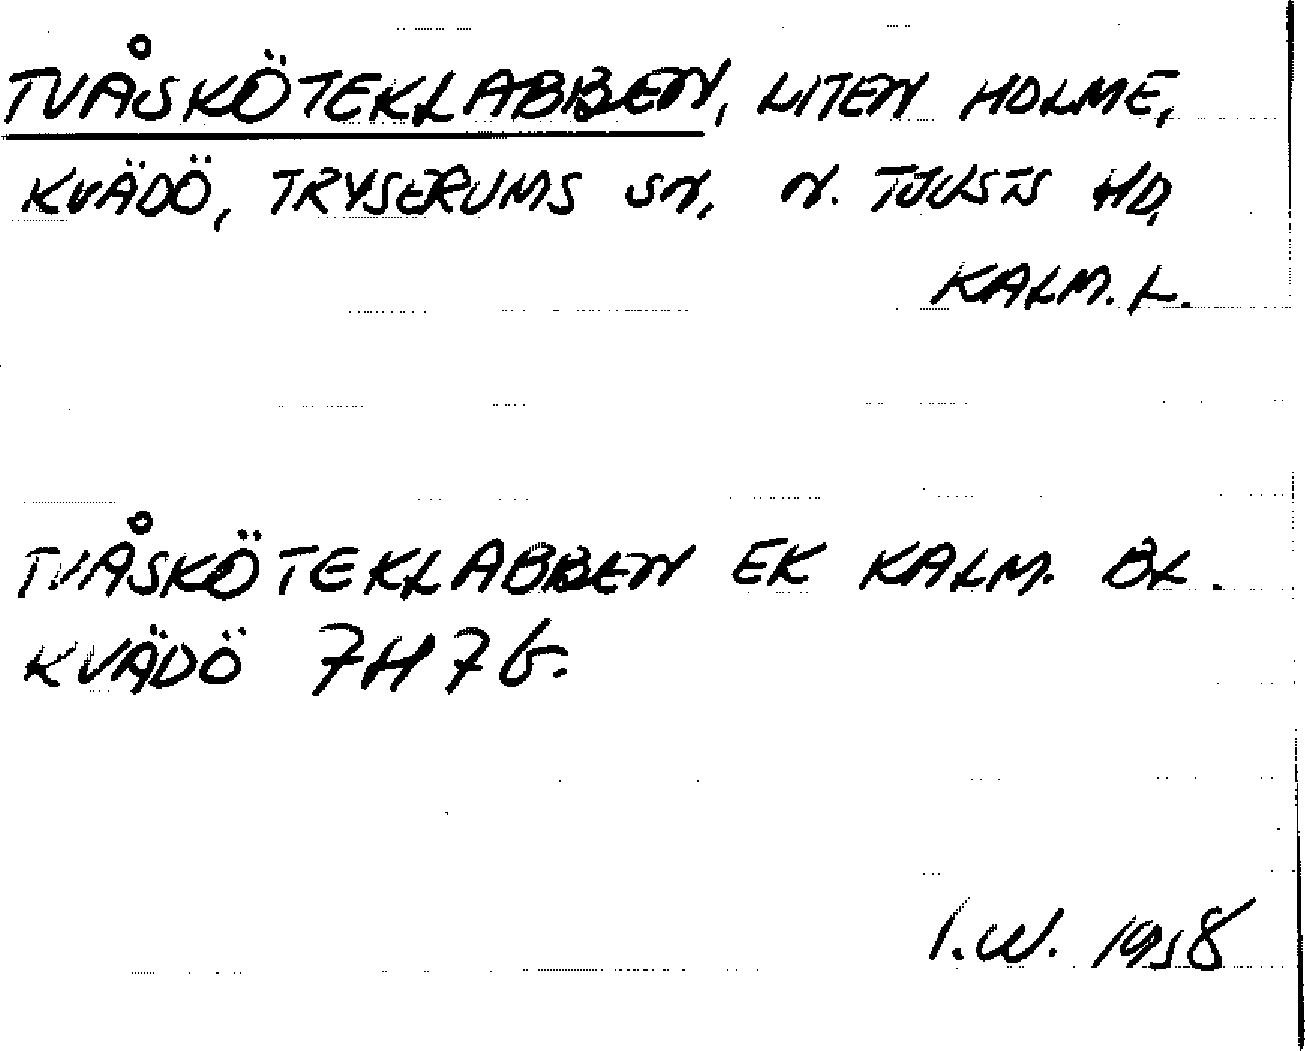 TVÅSKÖTEKLABBEN, LITEN HOLME,
KVÄDÖ, TRYSERUMS SN, N. TJUSTS HD,
KALM. L.
TVÅSKÖTEKLABBEN EK KALM. BL.
KVÄDÖ 7H7G.
I.W. 1958